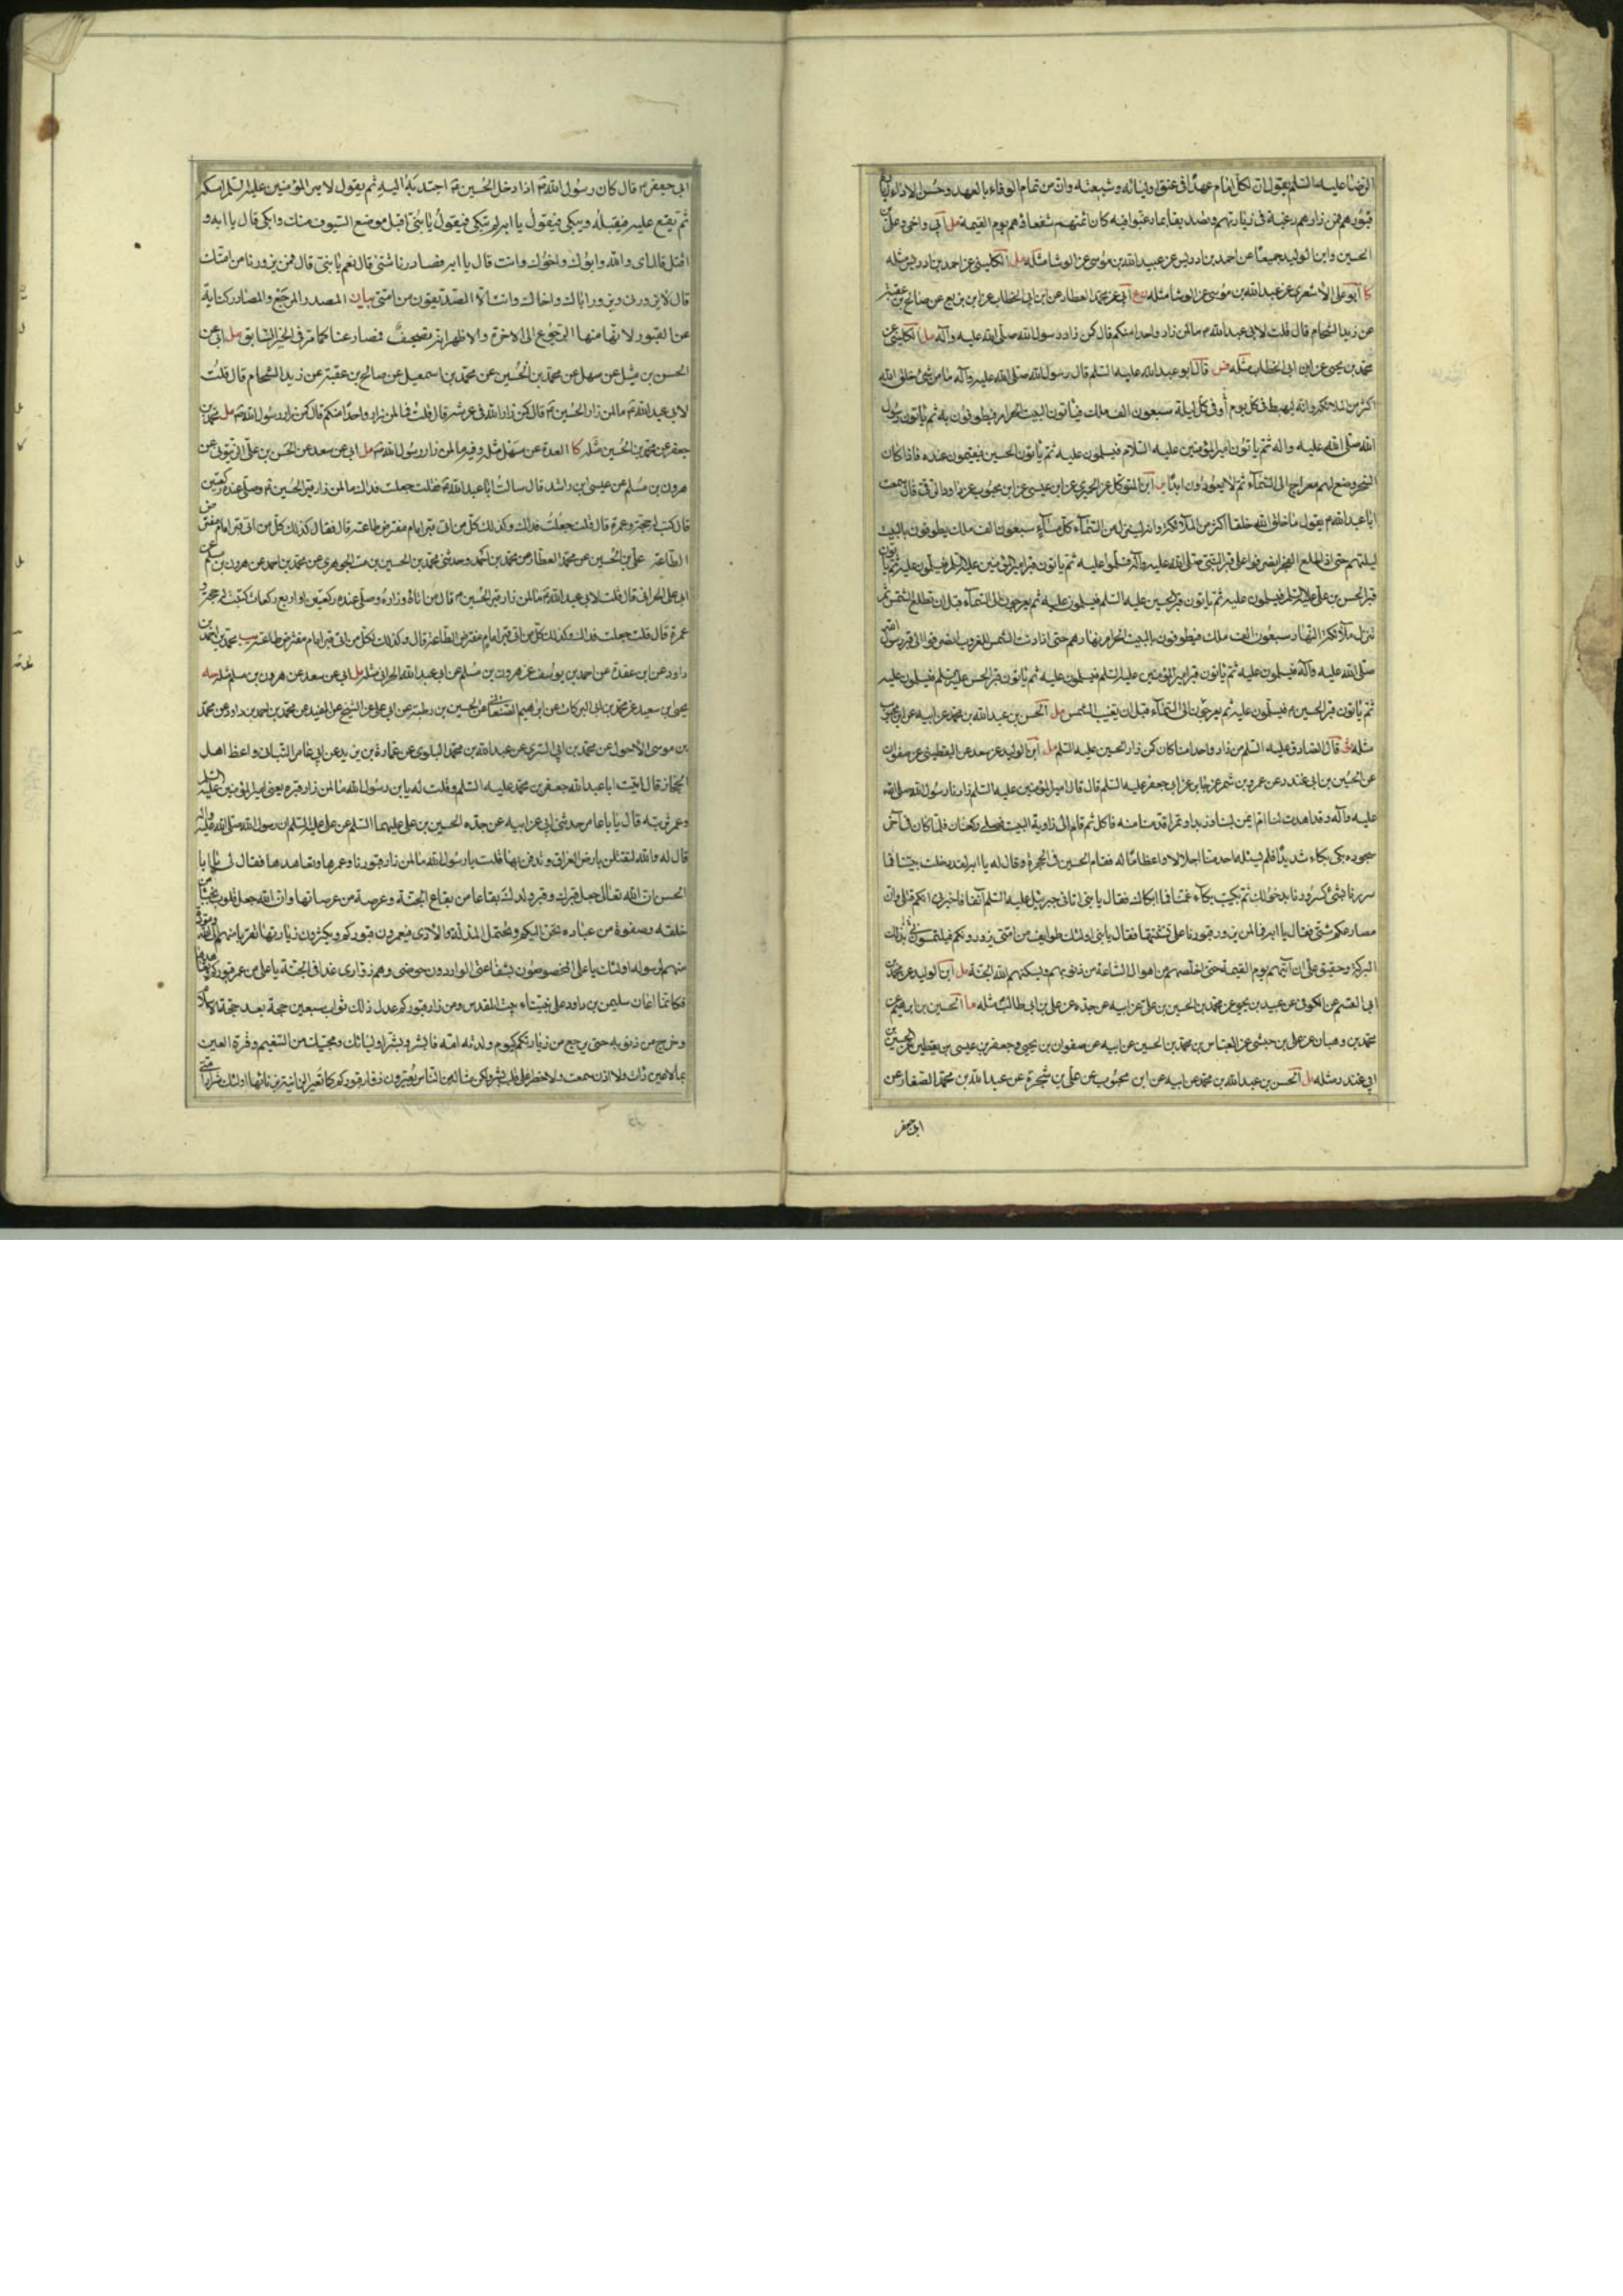 الرضا عليه السلم يقول ان لكل امام عهدا فى عنق اوليائه و شيعته وان من تمام الوفاء بالعهد و حسن الاداء زيارة
قبورهم فمن زارهم رغبة فى زيارتهم و تصديقا بما رغبوا فيه كان ائمتهم شفعاؤهم يوم القيمة مل ابى واخى وعلى بن
الحسين وابن الوليد جميعا عن احمد بن ادريس عن عبيد الله بن موسى عن الوشا مثله مل الكلينى عن احمد بن ادريس مثله
كا ابو على الاشعرى عن عبد الله بن موسى عن الوشا مثله ع ابى عن محمد العطار عن ابن ابى الخطاب عن ابن بزيع عن صالح بن عقبة
عن زيد الشحام قال قلت لابى عبد الله م ما لمن زار واحدا منكم قال كمن زار رسول الله صلى الله عليه وآله مل الكلينى عن
محمد بن يحيى عن ابن ابى الخطاب مثله فس قال ابو عبد الله عليه السلم قال رسول الله صلى الله عليه وآله ما من شئ خلق الله
اكثر من الملائكة وانه ليهبط فى كل يوم أو فى كل ليلة سبعون الف ملك فيأتون البيت الحرام فيطوفون به ثم يأتون رسول
الله صلى الله عليه واله ثم يأتون امير المؤمنين عليه السلام فيسلمون عليه ثم يأتون الحسين فيقيمون عنده فاذا كان
السحر وضع لهم معراج الى السماء ثم لا يعودون ابدا ابن المتوكل عن الحميرى عن ابن عيسى عن ابن محبوب عن داود الرقى قال سمعت
ابا عبد الله م يقول ما خلق الله خلقا اكثر من الملائكة وانه لينزل من السماء كل مساء سبعون الف ملك يطوفون بالبيت
ليلتهم حتى اذا طلع الفجر انصرفوا على قبر النبى صلى الله عليه وآله فسلموا عليه ثم ياتون قبر امير المؤمنين عليه السلم فيسلمون عليه ثم ياتون
قبر الحسن بن على عليه السلم فيسلمون عليه ثم ياتون قبر الحسين عليه السلم فيسلمون عليه ثم يعرجون الى السماء قبل ان تطلع الشمس ثم
تنزل ملائكة النهار سبعون الف ملك فيطوفون بالبيت الحرام نهارهم حتى اذا دنت الشمس للغروب انصرفوا الى قبر رسول الله
صلى الله عليه وآله فيسلمون عليه ثم ياتون قبر امير المؤمنين عليه السلم فيسلمون عليه ثم ياتون قبر الحسن عليه السلم فيسلمون عليه
ثم ياتون قبر الحسين م فيسلمون عليه ثم يعرجون الى السماء قبل ان تغيب الشمس مل الحسن بن عبد الله بن محمد عن ابيه عن ابن محبوب
مثله قال الصادق عليه السلم من زار واحدا منا كان كمن زار الحسين عليه السلم مل ابن الوليد عن سعد عن اليقطينى عن صفوان
عن الحسين بن ابى غندر عن عمرو بن شمر عن جابر عن ابى جعفر عليه السلم قال قال امير المؤمنين عليه السلم زارنا رسول الله صلى الله
عليه وآله وقد اهدت لنا ام ايمن لبنا وزبدا وتمرا قدمنا منه فاكل ثم قام الى زاوية البيت فصلى ركعات فلما كان فى آخر
سجوده بكى بكاء شديدا فلم يسئله احد منا اجلالا واعظاما له فقام الحسين فى الحجرة وقال له يا ابه لقد دخلت بيتنا فما
سررنا بشئ كسرورنا بدخولك ثم بكيت بكاء غمنا فما ابكاك فقال يا بنى اتانى جبرئيل عليه السلم آنفا فاخبرنى انكم قتلى وان
مصارعكم شتى فقال يا ابه فما لمن يزور قبورنا على تشتتها فقال يا بنى اولئك طوايف من امتى يزورونكم فيلتمسون بذلك
البركة وحقيق على ان آتيهم يوم القيمة حتى اخلصهم من اهوال الساعة من ذنوبهم ويسكنهم الله الجنة مل ابن الوليد عن محمد بن
ابى القسم عن الكوفى عن عبيد بن يحيى عن محمد بن الحسين بن على عن ابيه عن جده عن على بن ابى طالب مثله ما الحسين بن ابرهيم عن
محمد بن وهبان عن على بن حبشى عن العباس بن محمد بن الحسين عن ابيه عن صفوان بن يحيى وجعفر بن عيسى بن يقطين عن الحسين بن
ابى غندر مثله مل الحسن بن عبد الله بن محمد عن ابيه عن ابن محبوب عن على بن شجرة عن عبد الله بن محمد الصنعانى عن
ابى جعفر
ابى جعفر م قال كان رسول الله ص اذا دخل الحسين م اجتذبه اليه ثم يقول لامير المؤمنين عليه السلم امسكه
ثم يقع عليه فيقبله ويبكى فيقول يا ابه لم تبكى فيقول يا بنى اقبل موضع السيوف منك وابكى قال يا ابه و
اقتل قال اى والله وابوك واخوك وانت قال يا ابه فمصارعنا شتى قال نعم يا بنى قال فمن يزورنا من امتك
قال لا يزورنى ويزور اباك واخاك وانت الا الصديقون من امتى بيان المصدر المرجع والمصادر كناية
عن القبور لانها منها الرجوع الى الاخرة والاظهر انه تصحيف فمصارعنا كما مر فى الخبر السابق مل ابى عن
الحسن بن متيل عن سهل عن محمد بن الحسين عن محمد بن اسمعيل عن صالح بن عقبة عن زيد الشحام قال قلت
لابى عبد الله م ما لمن زار الحسين م قال كمن زار الله فى عرشه قال قلت فما لمن زار واحدا منكم قال كمن زار رسول الله ص مل محمد بن
جعفر عن محمد بن الحسين مثله كا العدة عن سهل مثله وفيه ما لمن زار رسول الله ص مل ابى عن سعد عن الحسن بن على الزيتونى عن
هرون بن مسلم عن عيسى بن راشد قال سالت ابا عبد الله م فقلت جعلت فداك ما لمن زار قبر الحسين م وصلى عنده ركعتين
قال كتبت له حجة وعمرة قال قلت جعلت فداك وكذلك كل من اتى قبر امام مفترض طاعته قال فقال كذلك كل من اتى قبر امام مفترض
الطاعة على بن الحسين عن محمد العطار عن محمد بن احمد وحدثنى محمد بن الحسين بن مت الجوهرى عن محمد بن احمد عن هرون بن مسلم عن
ابى على الحرانى قال قلت لابى عبد الله م ما لمن زار قبر الحسين م قال من اتاه وزاره وصلى عنده ركعتين او اربع ركعات كتبت له حجة و
عمرة قال قلت جعلت فداك وكذلك كل من اتى قبر امام مفترض الطاعة قال وكذلك لكل من اتى قبر امام مفترض طاعته يب محمد بن احمد بن
داود عن ابن عقدة عن احمد بن يوسف عن هرون بن مسلم عن ابى عبد الله الحرانى مثله مل ابى عن سعد عن هرون بن مسلم مثله
يحيى بن سعيد عن محمد بن ابى البركات عن ابرهيم الصنعانى عن الحسين بن رطبة عن ابى على عن الشيخ عن المفيد عن محمد بن احمد بن داود عن محمد
بن موسى الاحول عن محمد بن ابى السرى عن عبد الله بن محمد البلوى عن عمارة بن يزيد عن ابى عامر التبانى واعظ اهل
الحجاز قال اتيت ابا عبد الله جعفر بن محمد عليه السلم وقلت له يا بن رسول الله ما لمن زار قبره يعنى امير المؤمنين عليه السلم
وعمر تربته قال يا با عامر حدثنى ابى عن ابيه عن جده الحسين بن على عليهما السلم عن على عليه السلم ان رسول الله صلى الله عليه واله
قال له والله لتقتلن بارض العراق وتدفن بها قلت يا رسول الله ما لمن زار قبورنا وعمرها وتعاهدها فقال لى يا با
الحسن ان الله تعالى جعل قبرك وقبر ولدك بقاعا من بقاع الجنة وعرصة من عرصاتها وان الله جعل قلوب نجباء من
خلقه وصفوة من عباده تحن اليكم وتحتمل المذلة والاذى فيعمرون قبوركم ويكثرون زيارتها تقربا منهم الى الله ومودة
منهم لرسوله اولئك يا على المخصوصون بشفاعتى الواردون حوضى وهم زوارى غدا فى الجنة يا على من عمر قبوركم وتعاهدها
فكانما اعان سليمن بن داود على بناء بيت المقدس ومن زار قبوركم عدل ذلك ثواب سبعين حجة بعد حجة الاسلام
وخرج من ذنوبه حتى يرجع من زيارتكم كيوم ولدته امه فابشر وبشر اوليائك ومحبيك من النعيم وقرة العين
بما لا عين رات ولا اذن سمعت ولا خطر على قلب بشر ولكن حثالة من الناس يعيرون زوار قبوركم كما تعير الزانية بزنائها اولئك شرار امتى